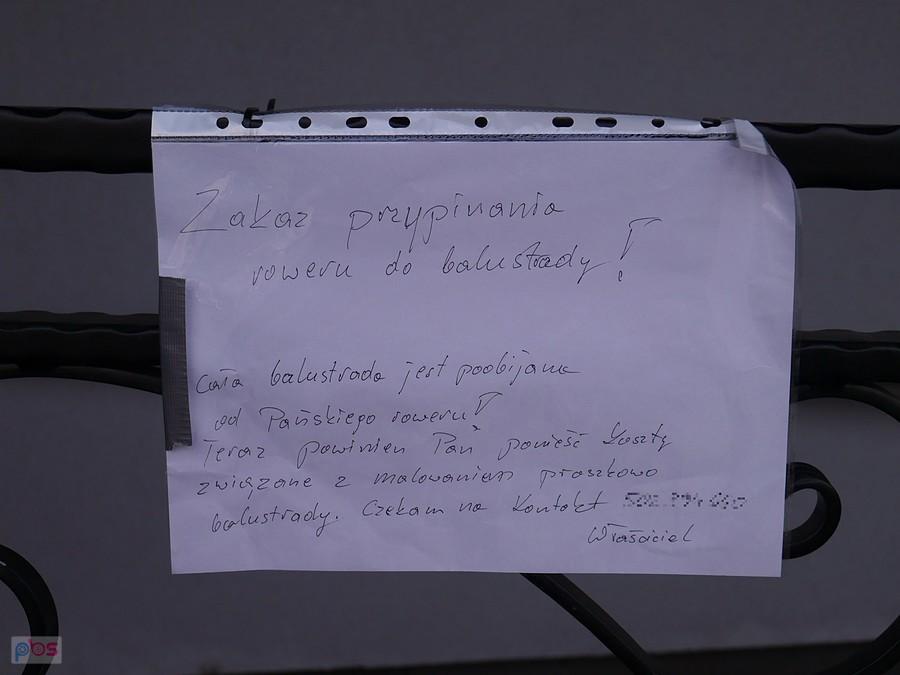 Zakaz przypinania
roweru do balustrady!
Cała balustrada jest poobijana
od Pańskiego roweru!
Teraz powinien Pan ponieść koszty
związane z malowaniem proszkowo
balustrady. Czekam na kontakt
Właściciel
pbs